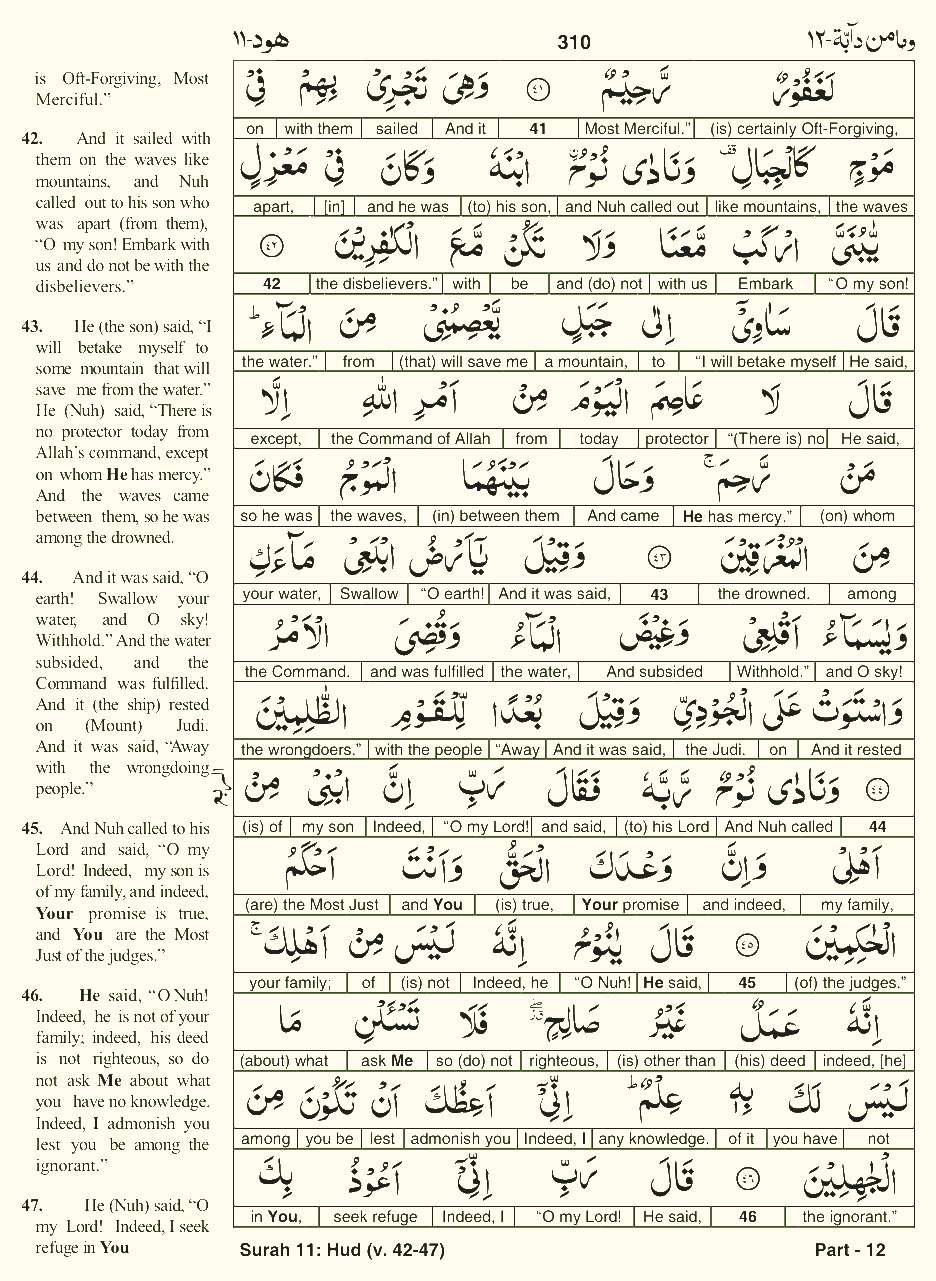 هود-١١ 310 وما من دآبة-١٢
is Oft-Forgiving, Most
Merciful.”
42. And it sailed with
them on the waves like
mountains, and Nuh
called out to his son who
was apart (from them),
“O my son! Embark with
us and do not be with the
disbelievers.”
43. He (the son) said, “I
will betake myself to
some mountain that will
save me from the water.”
He (Nuh) said, “There is
no protector today from
Allah’s command, except
on whom He has mercy.”
And the waves came
between them, so he was
among the drowned.
44. And it was said, “O
earth! Swallow your
water, and O sky!
Withhold.” And the water
subsided, and the
Command was fulfilled.
And it (the ship) rested
on (Mount) Judi.
And it was said, “Away
with the wrongdoing
people.”
45. And Nuh called to his
Lord and said, “O my
Lord! Indeed, my son is
of my family, and indeed,
Your promise is true,
and You are the Most
Just of the judges.”
46. He said, “O Nuh!
Indeed, he is not of your
family; indeed, his deed
is not righteous, so do
not ask Me about what
you have no knowledge.
Indeed, I admonish you
lest you be among the
ignorant.”
47. He (Nuh) said, “O
my Lord! Indeed, I seek
refuge in You
لَغَفُوْرٌ رَّحِيْمٌ ٤١ وَهِيَ تَجْرِيْ بِهِمْ فِيْ
on | with them | sailed | And it | 41 | Most Merciful.” | (is) certainly Oft-Forgiving,
مَوْجٍ كَالْجِبَالِ وَنَادٰى نُوْحُ ابْنَهٗ وَكَانَ فِيْ مَعْزِلٍ
apart, | [in] | and he was | (to) his son, | and Nuh called out | like mountains, | the waves
يّٰبُنَيَّ ارْكَبْ مَّعَنَا وَلَا تَكُنْ مَّعَ الْكٰفِرِيْنَ ٤٢
42 | the disbelievers.” | with | be | and (do) not | with us | Embark | “O my son!
قَالَ سَاٰوِيْٓ اِلٰى جَبَلٍ يَّعْصِمُنِيْ مِنَ الْمَآءِ ؕ
the water.” | from | (that) will save me | a mountain, | to | “I will betake myself | He said,
قَالَ لَا عَاصِمَ الْيَوْمَ مِنْ اَمْرِ اللّٰهِ اِلَّا
except, | the Command of Allah | from | today | protector | “(There is) no | He said,
مَنْ رَّحِمَ ۚ وَحَالَ بَيْنَهُمَا الْمَوْجُ فَكَانَ
so he was | the waves, | (in) between them | And came | He has mercy.” | (on) whom
مِنَ الْمُغْرَقِيْنَ ٤٣ وَقِيْلَ يٰٓاَرْضُ ابْلَعِيْ مَآءَكِ
your water, | Swallow | “O earth! | And it was said, | 43 | the drowned. | among
وَيٰسَمَآءُ اَقْلِعِيْ وَغِيْضَ الْمَآءُ وَقُضِيَ الْاَمْرُ
the Command. | and was fulfilled | the water, | And subsided | Withhold.” | and O sky!
وَاسْتَوَتْ عَلَى الْجُوْدِيِّ وَقِيْلَ بُعْدًا لِّلْقَوْمِ الظّٰلِمِيْنَ
the wrongdoers.” | with the people | “Away | And it was said, | the Judi. | on | And it rested
٤٤ وَنَادٰى نُوْحٌ رَّبَّهٗ فَقَالَ رَبِّ اِنَّ ابْنِيْ مِنْ
(is) of | my son | Indeed, | “O my Lord! | and said, | (to) his Lord | And Nuh called | 44
اَهْلِيْ وَاِنَّ وَعْدَكَ الْحَقُّ وَاَنْتَ اَحْكَمُ
(are) the Most Just | and You | (is) true, | Your promise | and indeed, | my family,
الْحٰكِمِيْنَ ٤٥ قَالَ يٰنُوْحُ اِنَّهٗ لَيْسَ مِنْ اَهْلِكَ ۚ
your family; | of | (is) not | Indeed, he | “O Nuh! | He said, | 45 | (of) the judges.”
اِنَّهٗ عَمَلٌ غَيْرُ صَالِحٍ فَلَا تَسْـَٔلْنِ مَا
(about) what | ask Me | so (do) not | righteous, | (is) other than | (his) deed | indeed, [he]
لَيْسَ لَكَ بِهٖ عِلْمٌ ؕ اِنِّيْٓ اَعِظُكَ اَنْ تَكُوْنَ مِنَ
among | you be | lest | admonish you | Indeed, I | any knowledge. | of it | you have | not
الْجٰهِلِيْنَ ٤٦ قَالَ رَبِّ اِنِّيْٓ اَعُوْذُ بِكَ
in You, | seek refuge | Indeed, I | “O my Lord! | He said, | 46 | the ignorant.”
Surah 11: Hud (v. 42-47) Part - 12